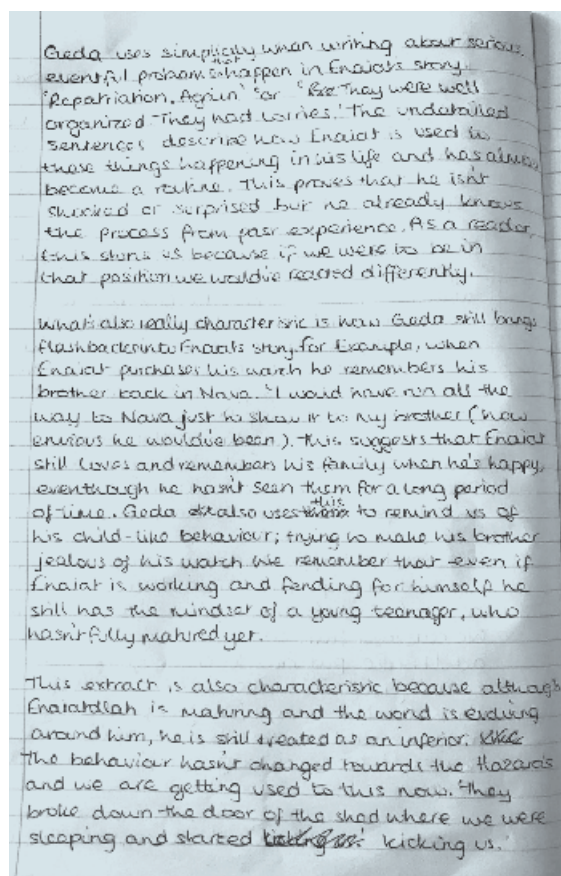 Geda uses simplicity when writing about serious,
eventful problems that happen in Enaiat's story.
'Repatriation. Again' or 'They were well
organized. They had lorries.' The undetailed
sentences describe how Enaiat is used to
those things happening in his life and has almost
become a routine. This proves that he isn't
shocked or surprised but he already knows
the process from past experience. As a reader,
this stuns us because if we were to be in
that position we would've reacted differently.
What's also really characteristic is how Geda still brings
flashbacks into Enaiat's story. for Example, when
Enaiat purchases his watch he remembers his
brother back in Nava. "I would have run all the
way to Nava just to show it to my brother (how
envious he would've been). This suggests that Enaiat
still loves and remembers his family when he's happy,
eventhough he hasn't seen them for a long period
of time. Geda also uses this to remind us of
his child-like behaviour; trying to make his brother
jealous of his watch. We remember that even if
Enaiat is working and fending for himself he
still has the mindset of a young teenager, who
hasn't fully matured yet.
This extract is also characteristic because although
Enaiatollah is maturing and the world is evolving
around him, he is still treated as an inferior.
The behaviour hasn't changed towards the Hazaras
and we are getting used to this now. 'They
broke down the door of the shed where we were
sleeping and started kicking us.'